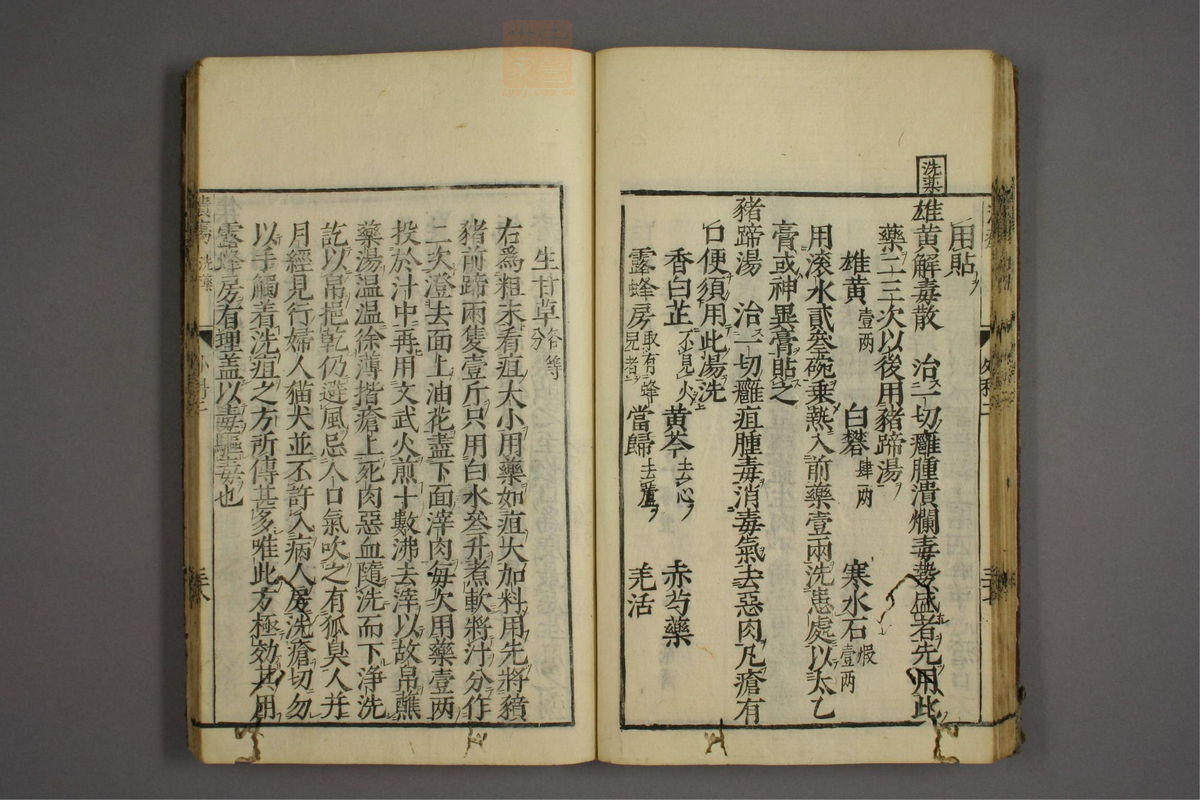 洗藥
用貼
雄黄解毒散 治一切癰腫潰爛毒勢盛者先用此
藥二三次以後用豬蹄湯
雄黄壹两 白礬肆两 寒水石煆壹两
用滚水貳叁碗乗熱入前藥壹兩洗患處以太乙
膏或神異膏貼之
豬蹄湯 治一切癰疽腫毒消毒氣去惡肉凡瘡有
口便須用此湯洗
香白芷不見火 黄芩去心 赤芍藥
露蜂房取有蜂兒者 當歸去蘆 羌活
生甘草各等分
右爲粗末看疽大小用藥如疽大加料用先將豶
豬前蹄兩隻壹斤只用白水叁升煮軟將汁分作
二次澄去面上油花盡下面滓肉每次用藥壹两
投於汁中再用文武火煎十數沸去滓以故帛蘸
藥湯温温徐薄揩瘡上死肉惡血隨洗而下淨洗
訖以帛挹乾仍避風忌人口氣吹之有狐臭人并
月經見行婦人猫犬並不許入病人房洗瘡切勿
以手觸着洗疽之方所傳甚多唯此方極効其用
露蜂房有理盖以毒驅毒也
外科二